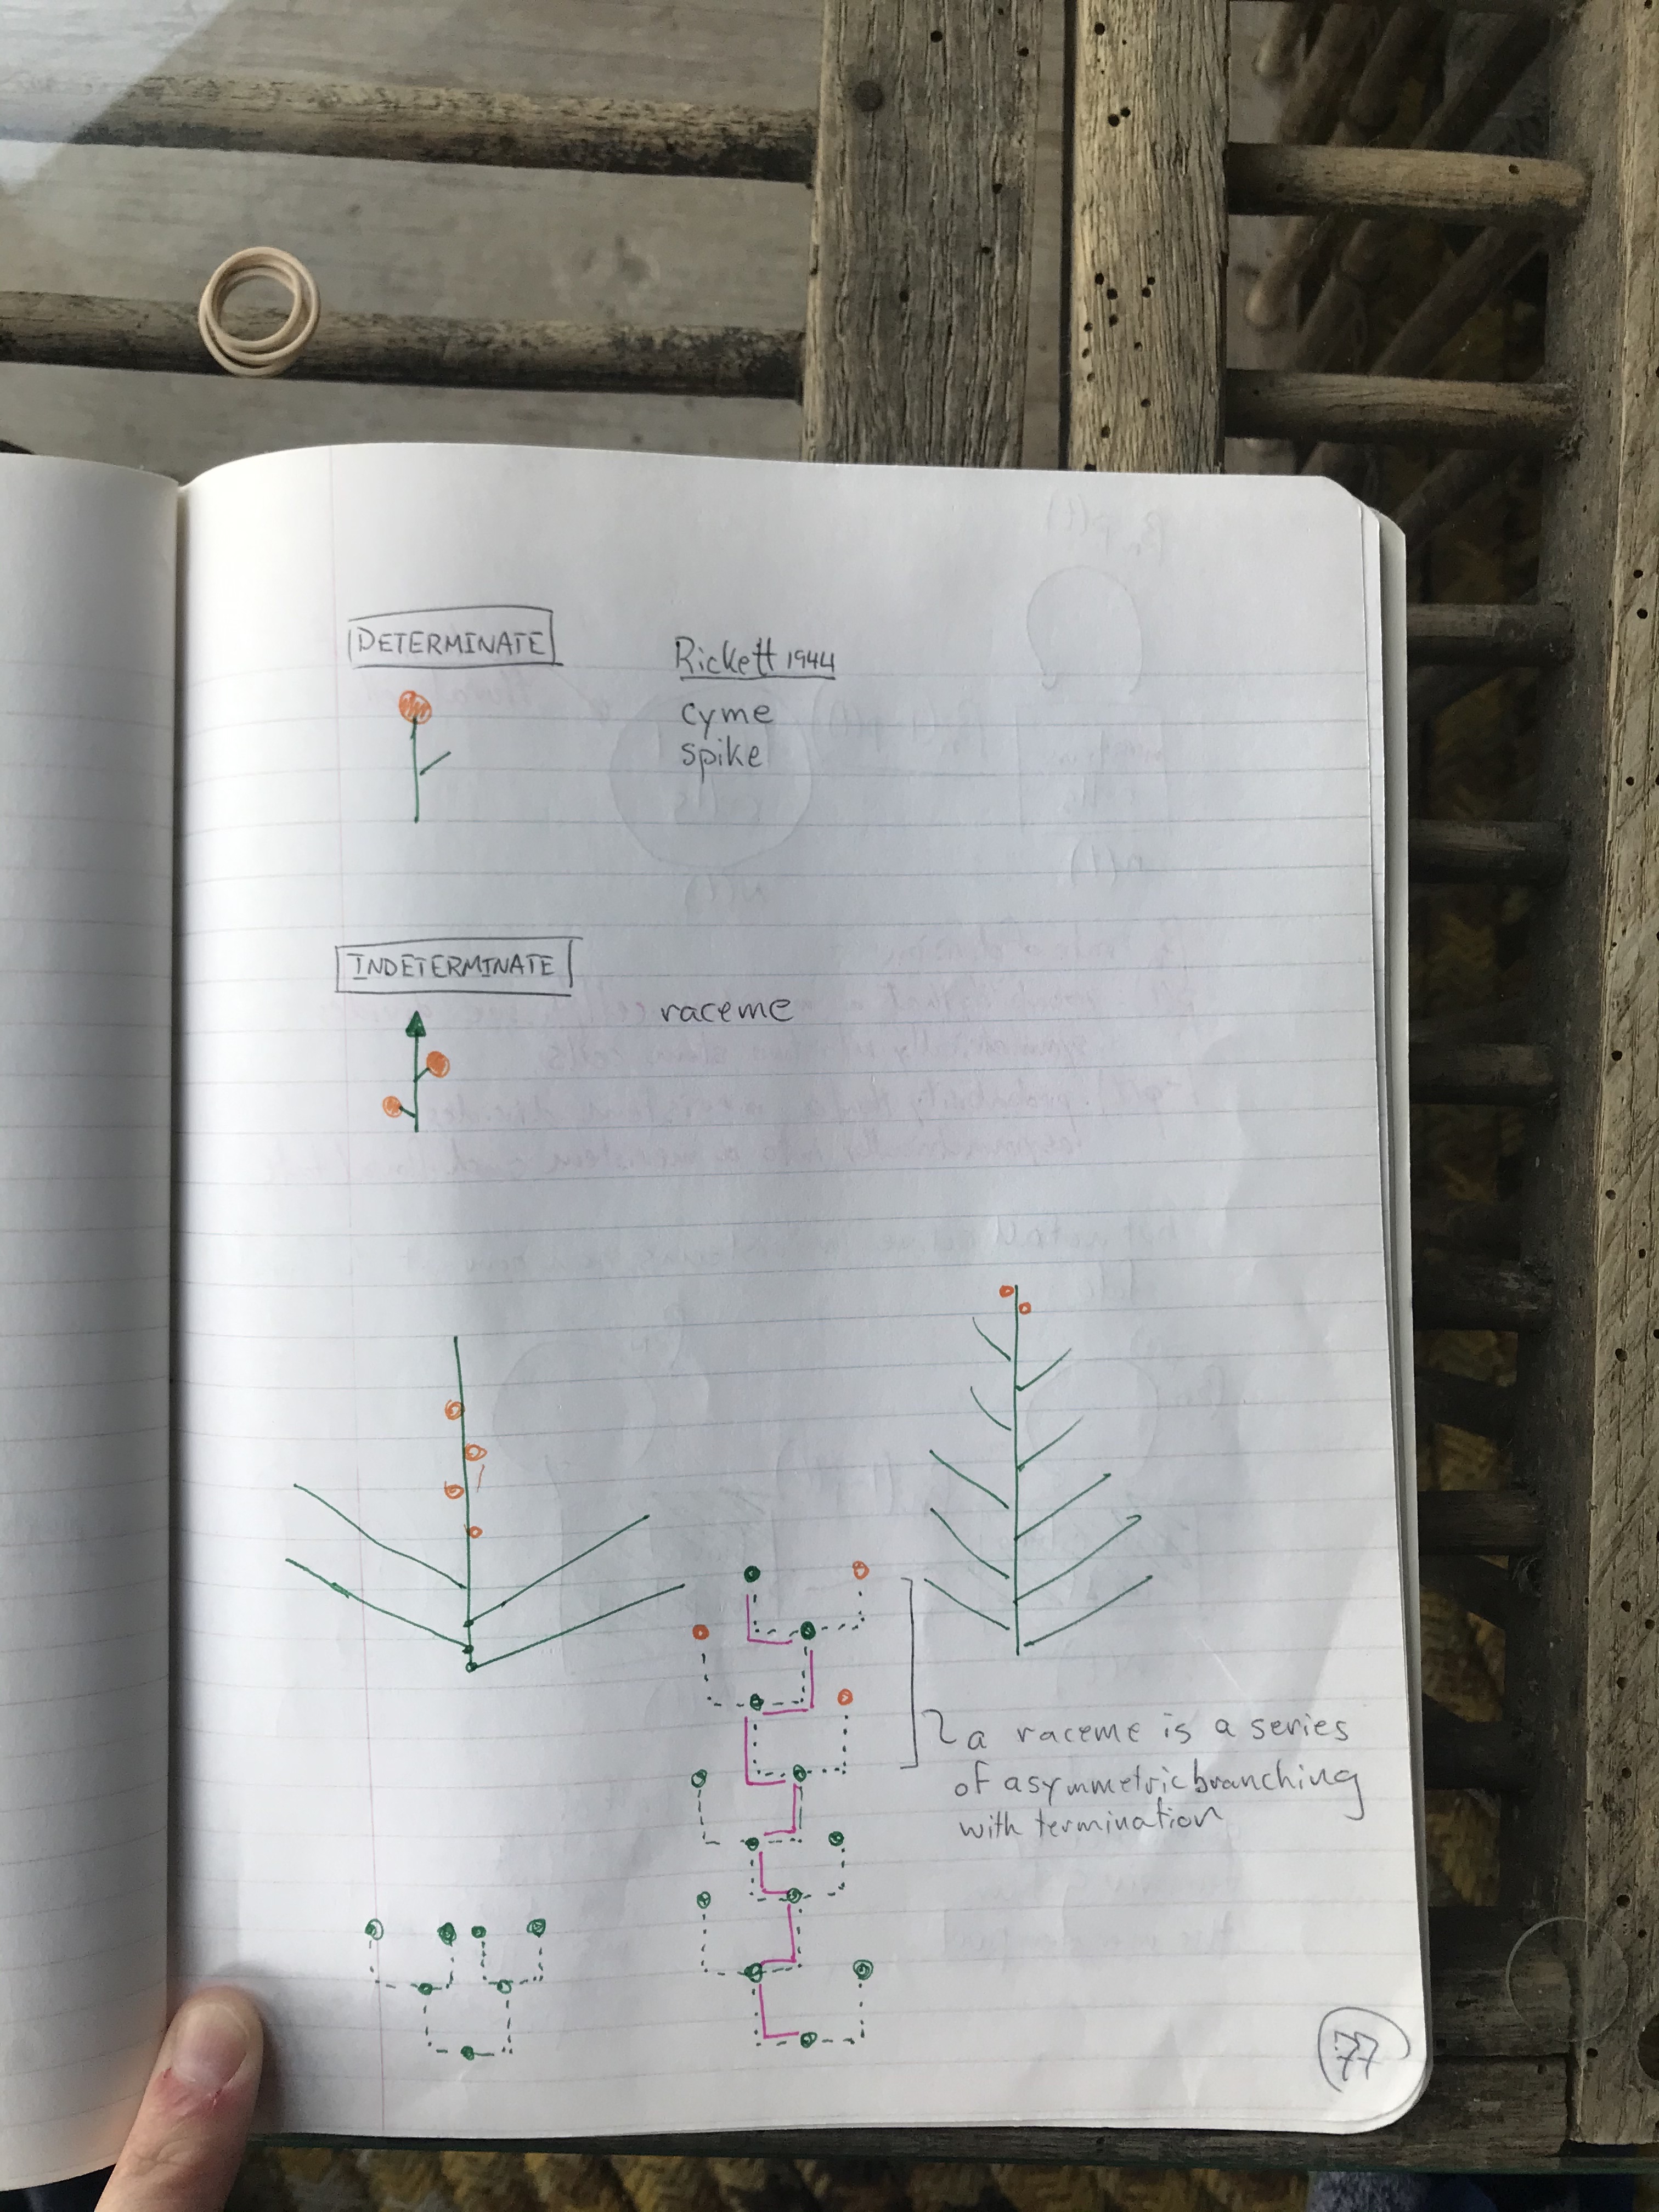 DETERMINATE
Rickett 1944
cyme
spike
INDETERMINATE
raceme
a raceme is a series
of asymmetric branching
with termination
77